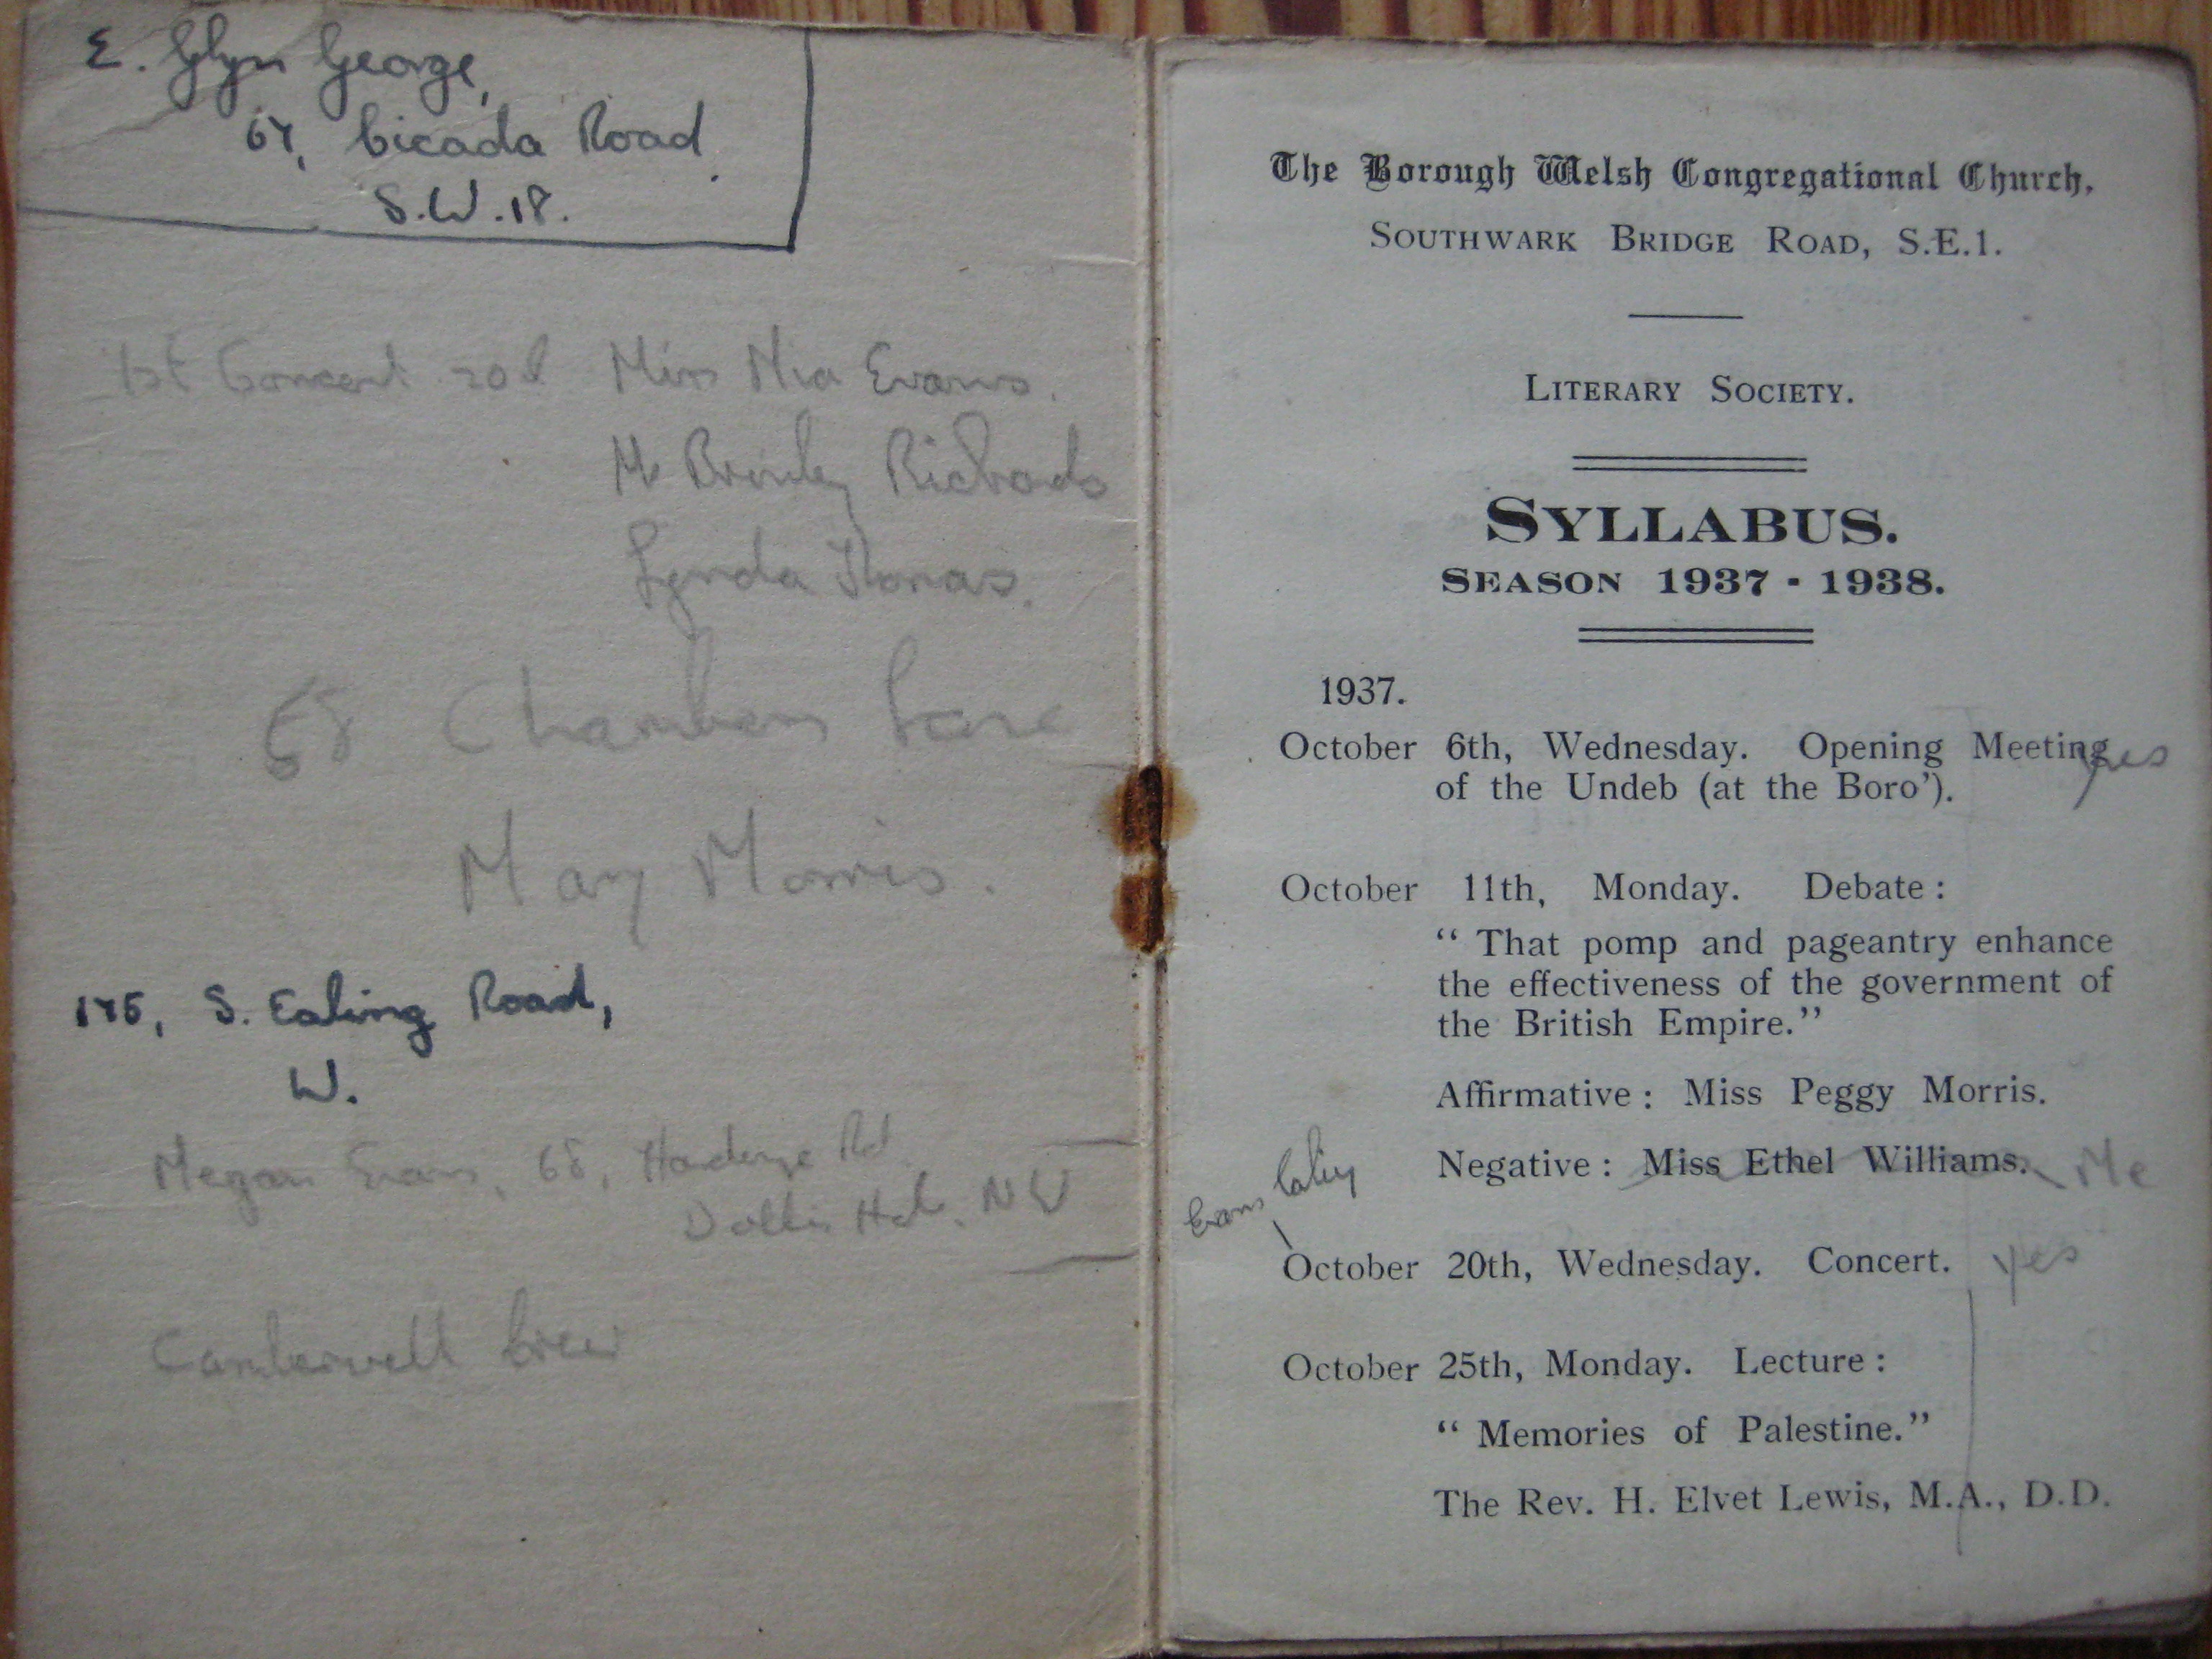 E. Glyn George,
67, Cicada Road
S.W.18.
1st Concert 20th Miss Mia Evans.
Mr Brinley Richards
Lynda Thomas.
68 Chambers Lane
Mary Morris.
175, S. Ealing Road,
W.
Megan Evans, 68, Rd
Dollis Hill. NW
Camberwell
The Borough Welsh Congregational Church,
SOUTHWARK BRIDGE ROAD, S.E.1.
LITERARY SOCIETY.
SYLLABUS.
SEASON 1937 - 1938.
1937.
October 6th, Wednesday. Opening Meeting yes
of the Undeb (at the Boro').
October 11th, Monday. Debate :
“ That pomp and pageantry enhance
the effectiveness of the government of
the British Empire.”
Affirmative : Miss Peggy Morris.
Negative : Miss Ethel Williams. Me
Evans
October 20th, Wednesday. Concert. yes
October 25th, Monday. Lecture :
“ Memories of Palestine.”
The Rev. H. Elvet Lewis, M.A., D.D.